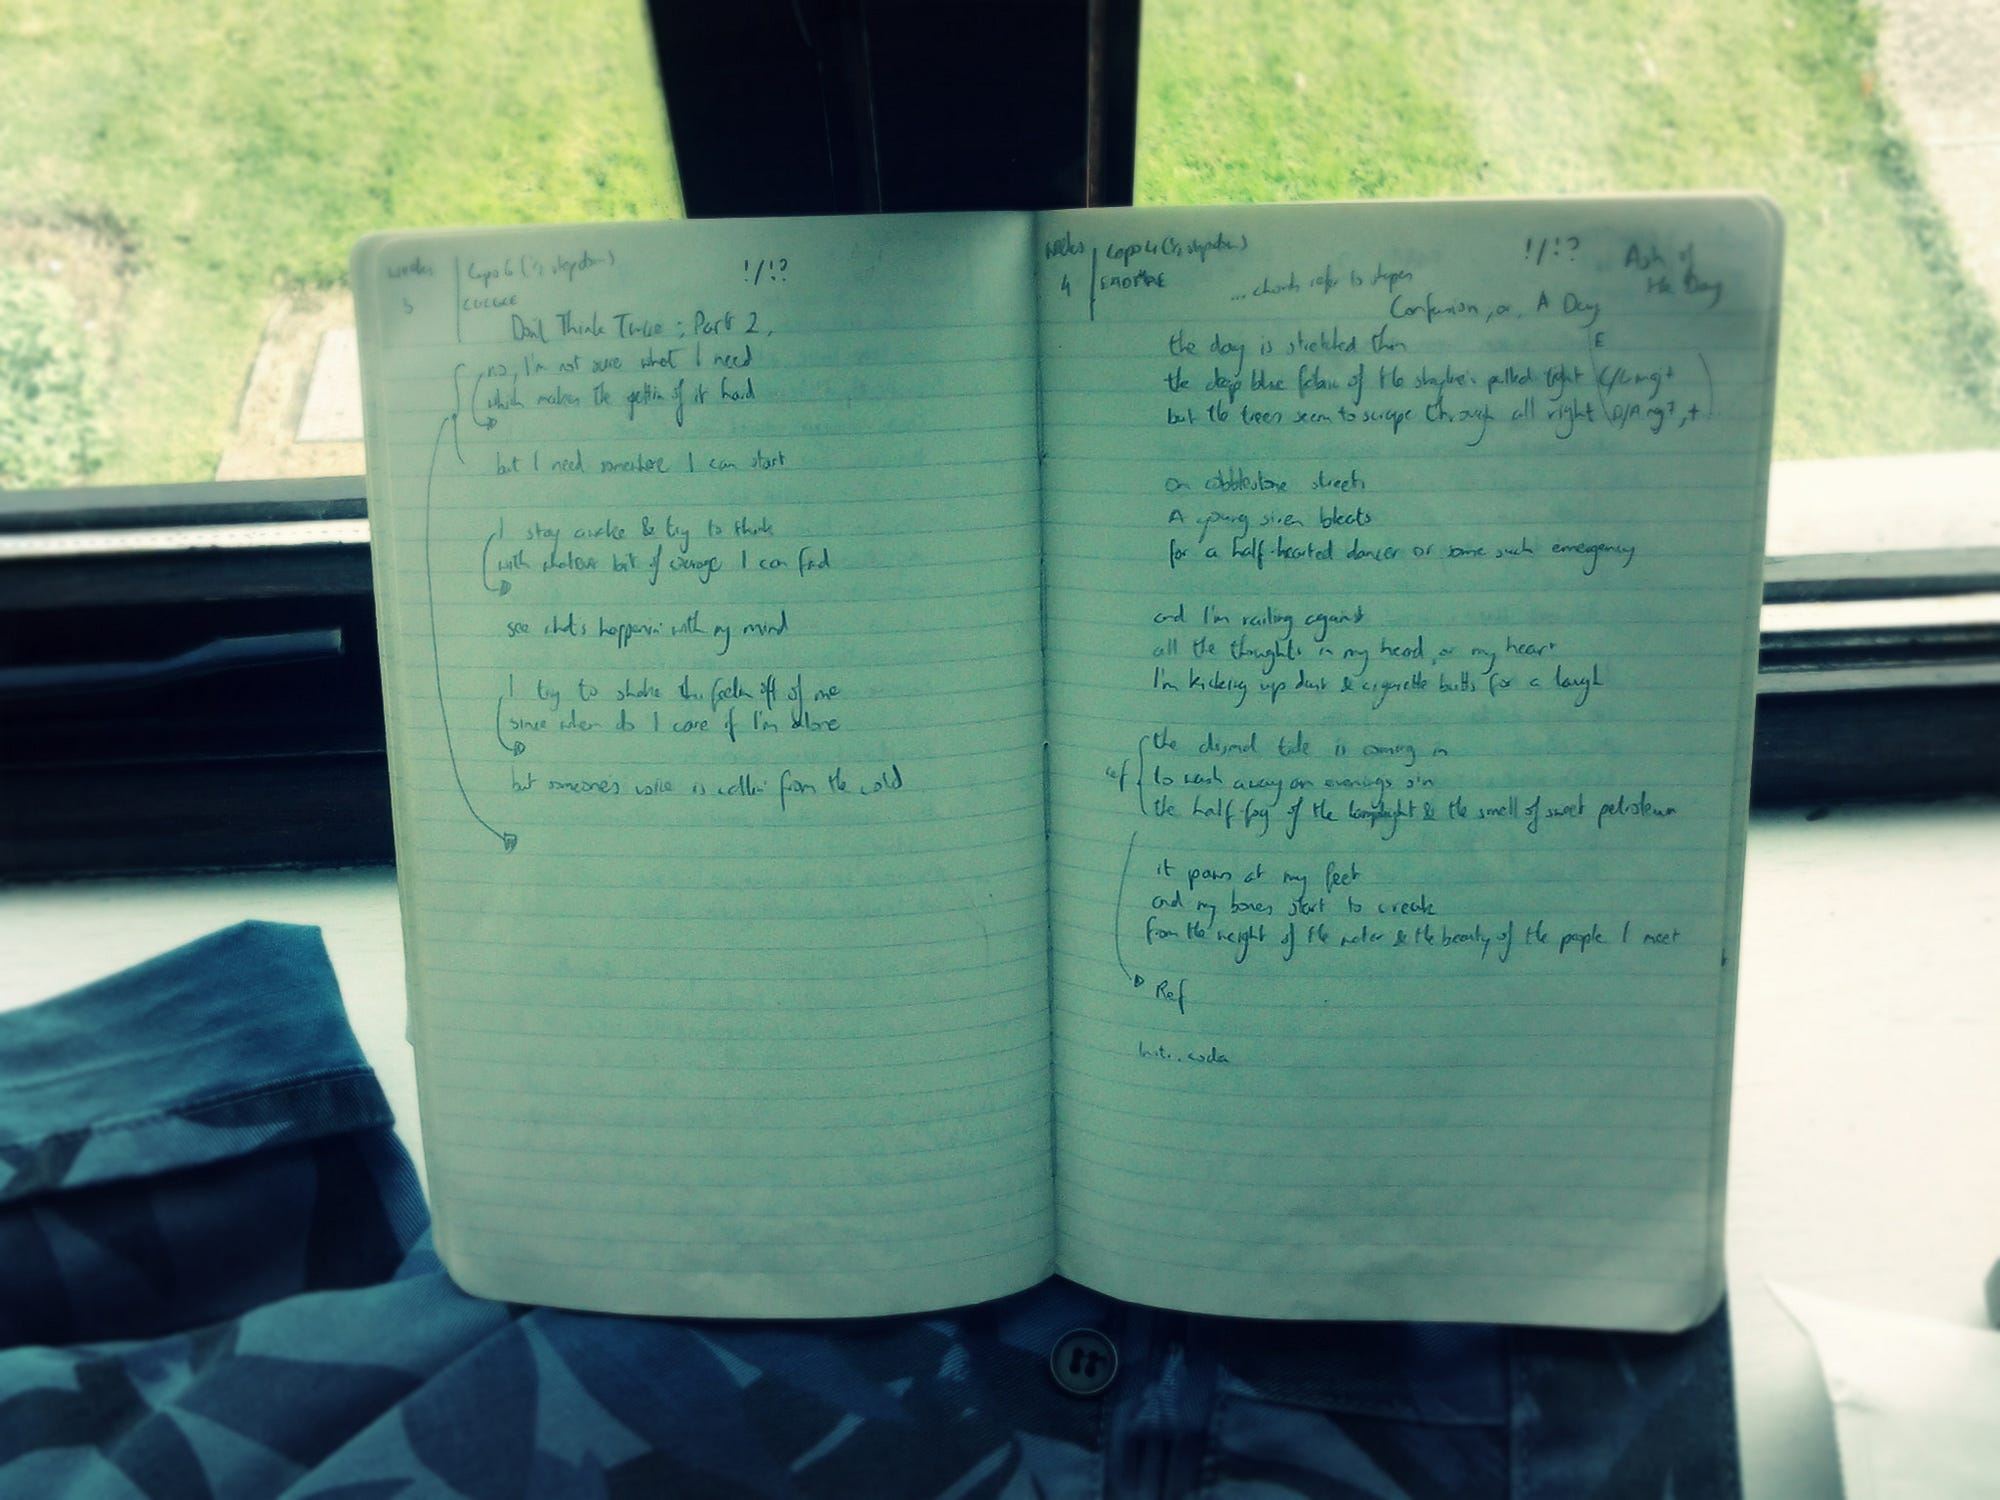 weeks
3
Capo 6 (½ stepdown)
!/!?
Don't Think Twice; Part 2,
no, I'm not sure what I need
which makes the gettin of it hard
but I need somewhere I can start
I stay awake & try to think
with whatever bit of courage I can find
see what's happenin' with my mind
I try to shake this feelin off of me
since when do I care if I'm alone
but someone's voice is callin' from the cold
weeks
4
Capo 4 (½ stepdown)
!/!?
Ash of
the Day
... chords refer to shapes
Confusion, or, A Day
the day is stretched thin
E
the deep blue fabric of the skyline's pulled tight
but the trees seem to scrape through all right
on cobblestone streets
A young siren bleats
for a half-hearted dancer or some such emergency
and I'm railing against
all the thoughts in my head, or my heart
I'm kicking up dust & cigarette butts for a laugh
the dismal tide is coming in
ref
to wash away an evenings sin
the half-fog of the lamplight & the smell of sweet petroleum
it paws at my feet
and my bones start to creak
from the weight of the water & the beauty of the people I meet
Ref
coda